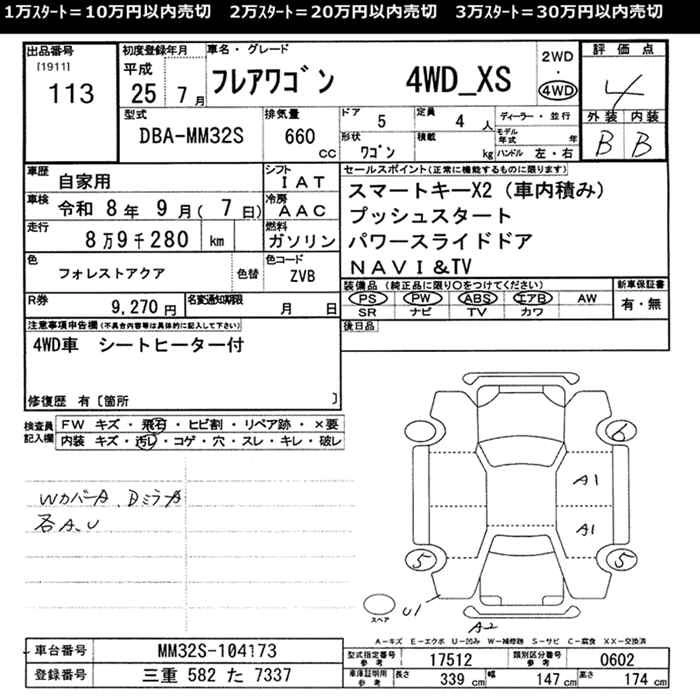 1万ｽﾀｰﾄ＝10万円以内売切　2万ｽﾀｰﾄ＝20万円以内売切　3万ｽﾀｰﾄ＝30万円以内売切
出品番号
[1911]
113
初度登録年月
平成
25 7月
車名・グレード
フレアワゴン 4WD_XS
2WD
4WD
評価点
4
外装 内装
B B
型式
DBA-MM32S
排気量
660 cc
ドア
5
定員
4人
形状
ワゴン
積載
kg
ディーラー・並行
モデル年式 年
ハンドル 左・右
車歴
自家用
シフト
IAT
車検
令和 8年 9月( 7日)
冷房
AAC
走行
8万9千280 km
燃料
ガソリン
色
フォレストアクア
色替
色コード
ZVB
R券
9,270円
名変通知期限
月 日
セールスポイント(正常に機能するものに限ります)
スマートキーX2（車内積み）
プッシュスタート
パワースライドドア
NAVI&TV
装備品（純正品に限り○をつけてください）
PS PW ABS エアB AW
SR ナビ TV カワ
新車保証書
有・無
後日品
注意事項申告欄(不具合内容等は具体的に記入して下さい)
4WD車 シートヒーター付
修復歴 有〔箇所 〕
検査員記入欄
FW キズ・飛石・ヒビ割・リペア跡・×要
内装 キズ・汚レ・コゲ・穴・スレ・キレ・破レ
WカバーA、DミラーA
各A、U
6
A1
A1
5
5
スペア
U1
A2
A－キズ E－エクボ U－凹み W－補修跡 S－サビ C－腐食 XX－交換済
車台番号
MM32S-104173
登録番号
三重 582 た 7337
型式指定番号 参考
17512
類別区分番号 参考
0602
車庫証明用 参考
長さ 339 cm 幅 147 cm 高さ 174 cm